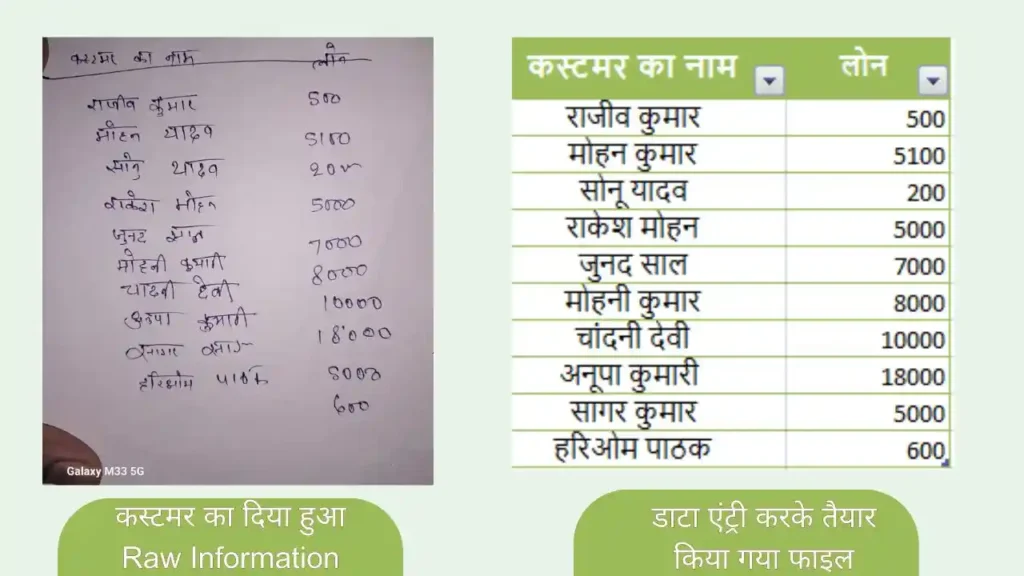 कस्टमर का नाम लोन
राजीव कुमार 500
मोहन यादव 5100
सोनु यादव 200
राकेश मोहन 5000
जुनद साल 7000
मोहनी कुमारी 8000
चादनी देवी 10000
कुमारी 18000
सागर 5000
हरिओम पाठक 600
Galaxy M33 5G
कस्टमर का दिया हुआ
Raw Information
कस्टमर का नाम लोन
राजीव कुमार 500
मोहन कुमार 5100
सोनू यादव 200
राकेश मोहन 5000
जुनद साल 7000
मोहनी कुमार 8000
चांदनी देवी 10000
अनूपा कुमारी 18000
सागर कुमार 5000
हरिओम पाठक 600
डाटा एंट्री करके तैयार
किया गया फाइल